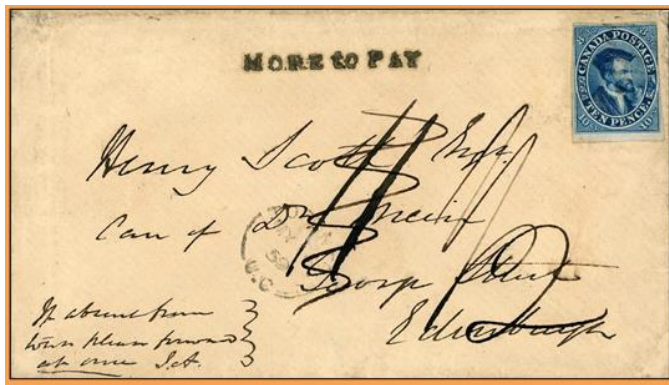 MORE to PAY
CANADA POSTAGE
TEN PENCE
Henry Scott Esqr.
Care of Dr.
George Street
Edinburgh
U.C
If absent from
town please forward
at once